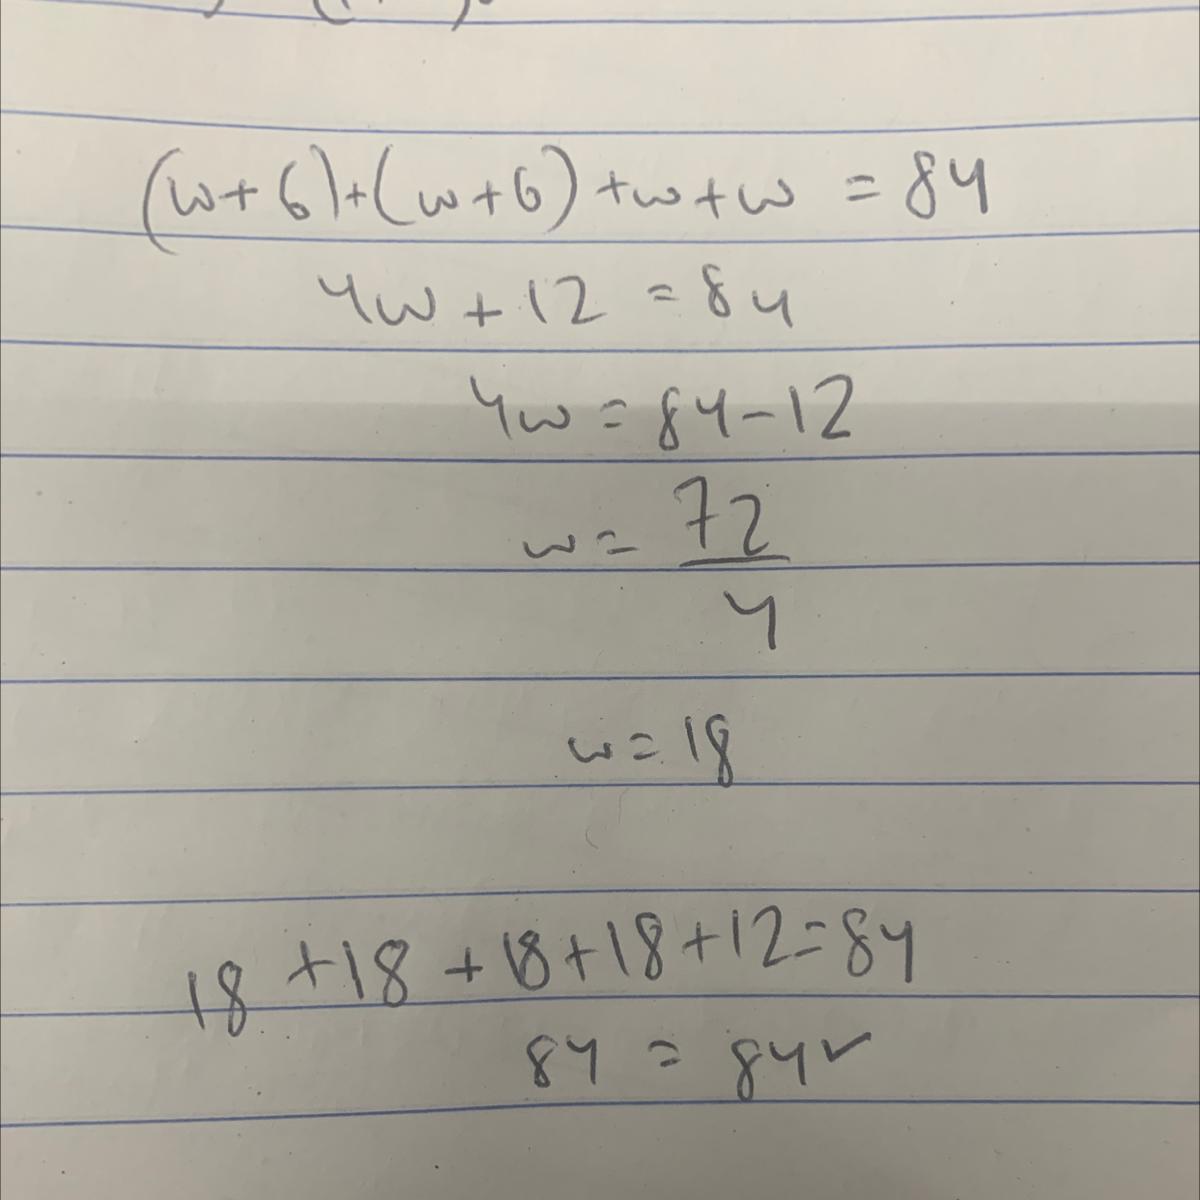 (w+6)+(w+6)+w+w = 84
4w + 12 = 84
4w = 84-12
w = 72
4
w = 18
18 +18 + 18+18+12=84
84 = 84✓